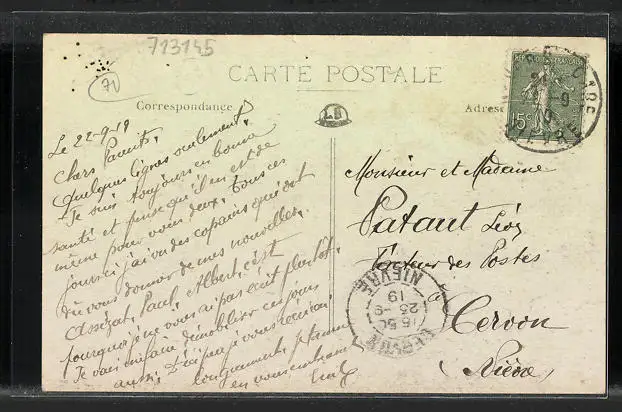 713145
70
CARTE POSTALE
Correspondance
LB
Adresse
REPUBLIQUE FRANÇAISE
15c
Le 22-9-19
Chers Parents.
Quelques lignes seulement.
Je suis toujours en bonne
santé et pense qu'il en est de
même pour vous deux. Tous ces
jours-ci j'ai vu des copains qui ont
dû vous donner de mes nouvelles.
Paul, Albert, c'est
pourquoi je ne vous ai pas écrit plus tôt.
Je vais me faire démobiliser ces jours
aussi. D'ici peu je vous écrirai
longuement. Je termine
en vous embrassant
Monsieur et Madame
Pataut Léon
Facteur des Postes
à Cervon
(Nièvre)
CERVON
16 50
23-9
19
NIEVRE